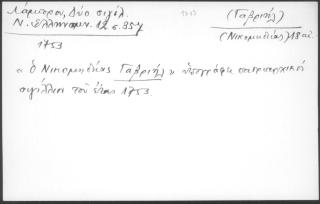 Λάμπρου, Δύο σιγίλ.
Ν. Ελληνομν. 12 σ. 357
1753
(Γαβριήλ)
(Νικομηδείας) 18 αι.
«ὁ Νικομηδείας Γαβριήλ» ὑπογράφει πατριαρχικὸν
σιγίλλιον τοῦ ἔτους 1753.